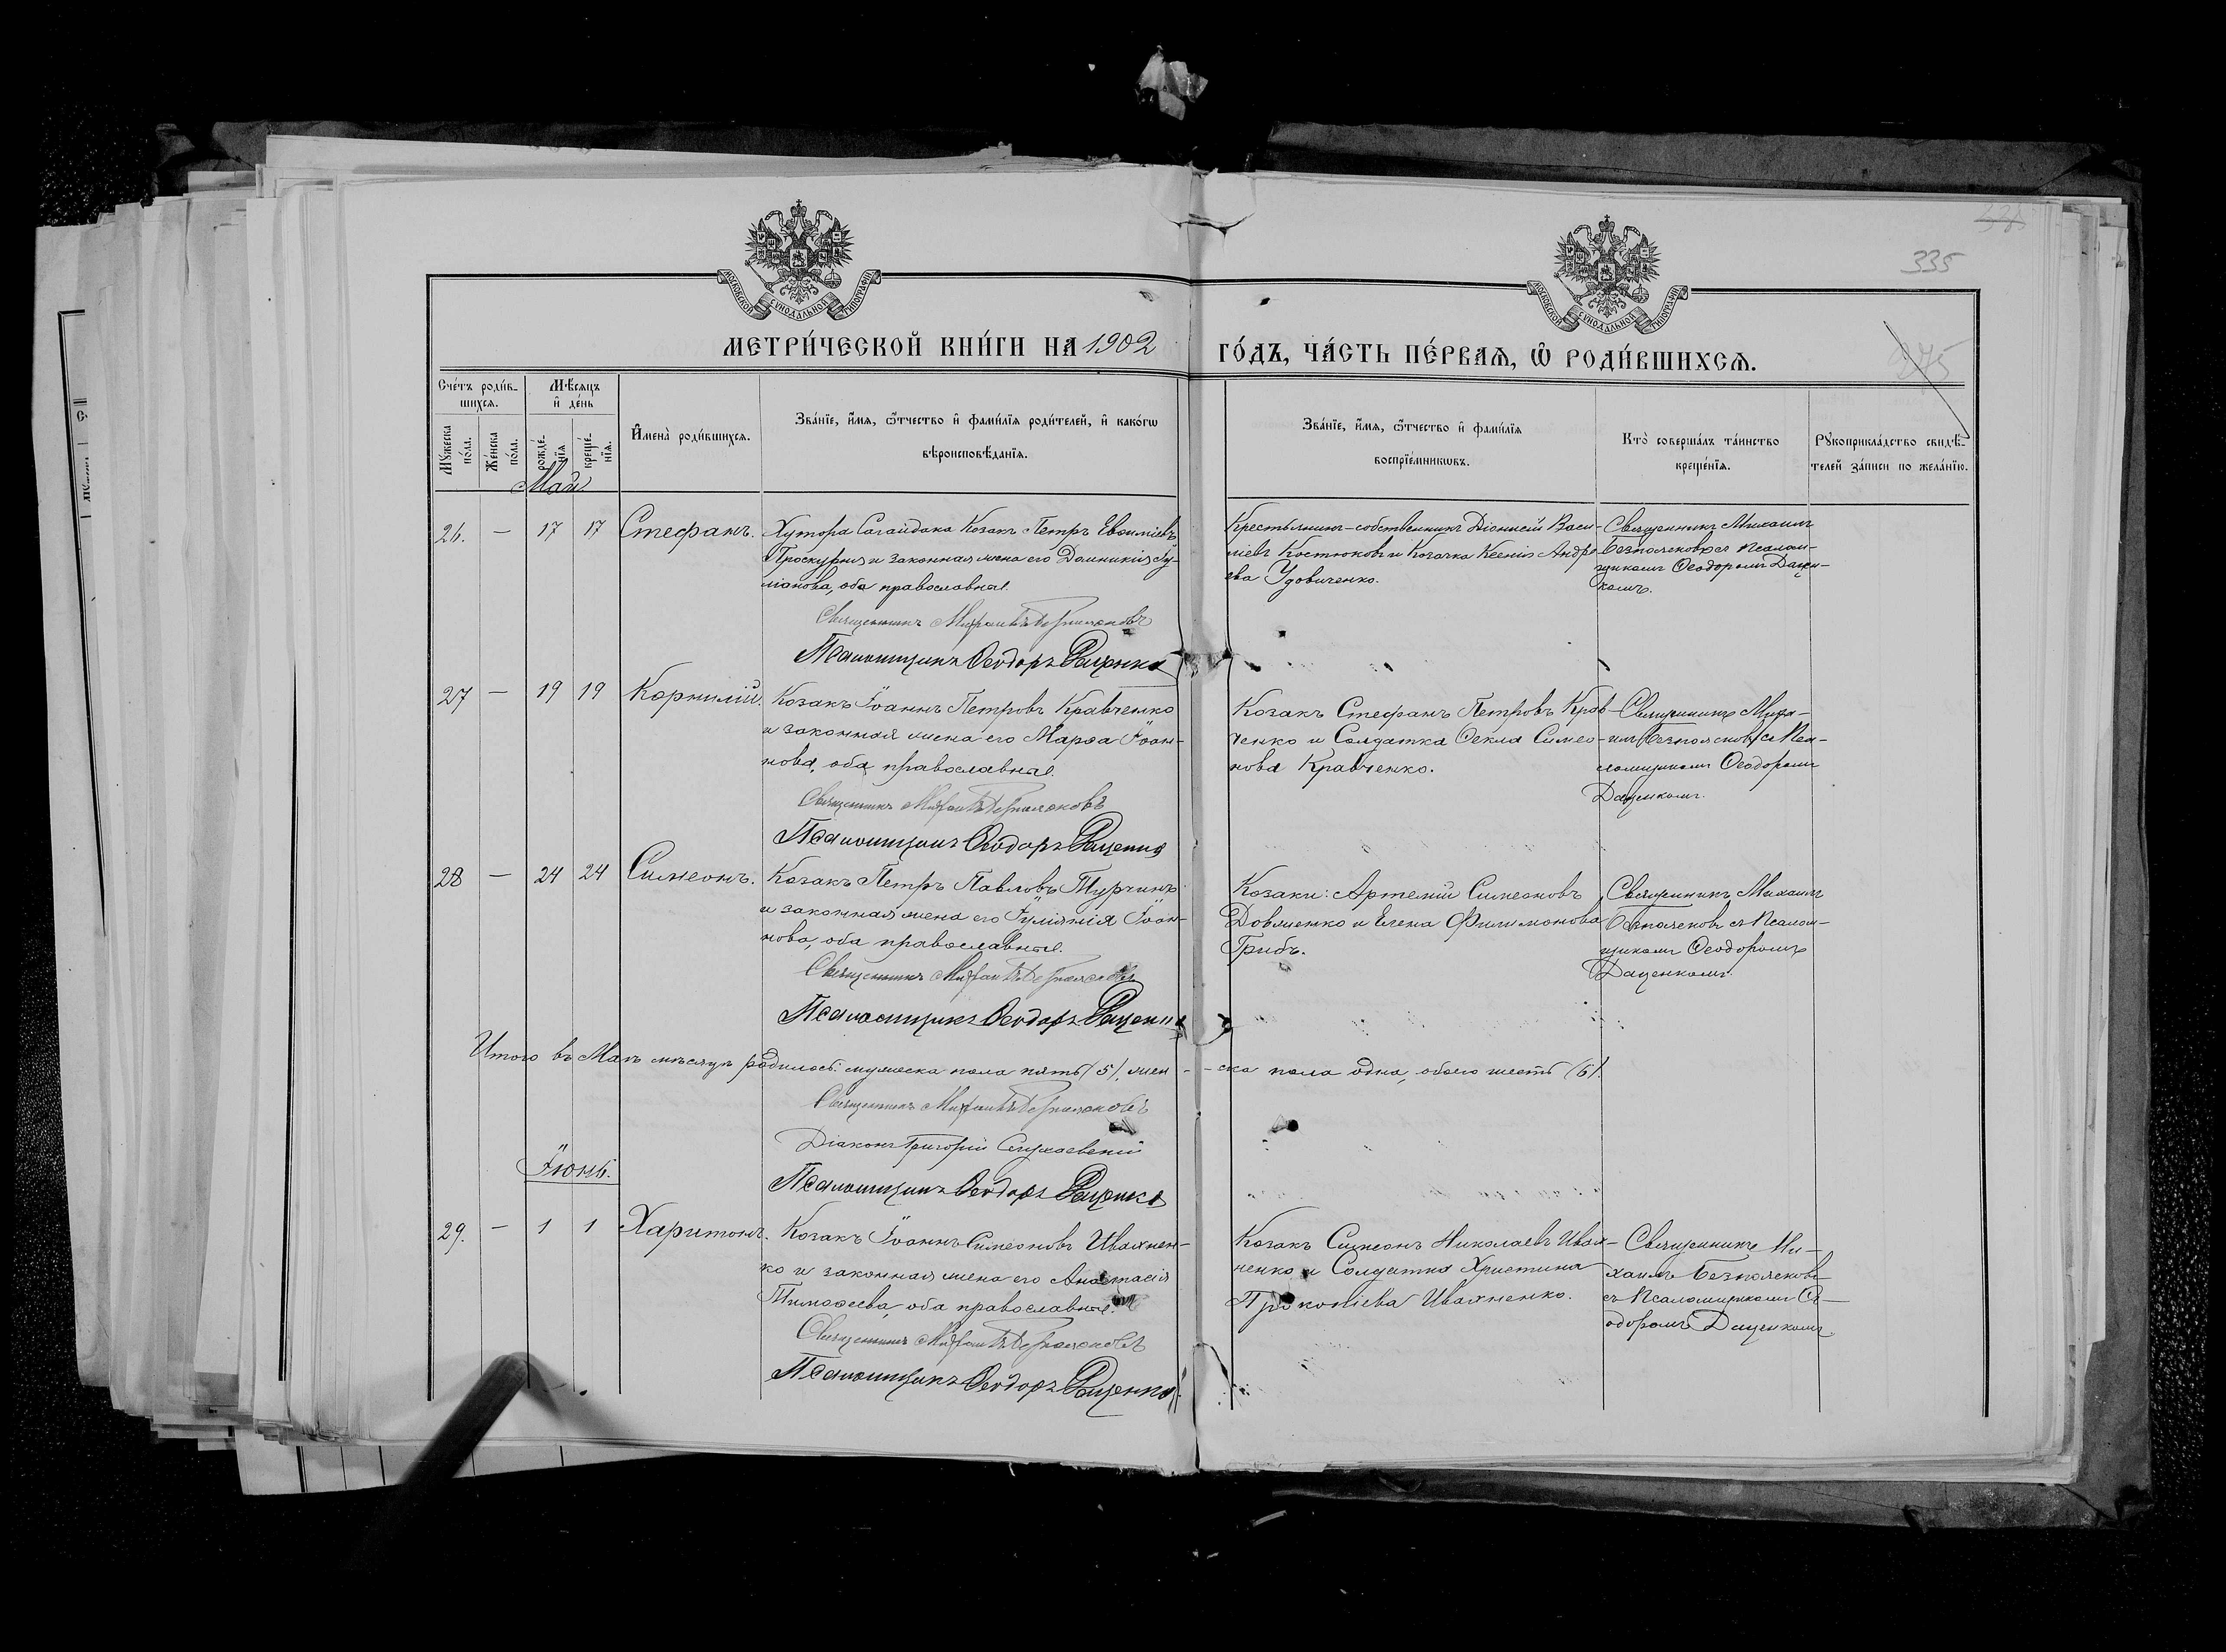 МОСКОВСКОЙ СѴНОДАЛЬНОЙ ТИПОГРАФІИ
МОСКОВСКОЙ СѴНОДАЛЬНОЙ ТИПОГРАФІИ
335
275
МЕТРИ́ЧЕСКОЙ КНИ́ГИ НА 1902
ГО́ДЪ, ЧА́СТЬ ПЕ́РВАѦ, Ѡ҆ РОДИ́ВШИХСѦ.
Сче́тъ роди́в-
шихсѧ.
Мѣ́сѧцъ
и҆ де́нь
Мꙋ́жеска
по́ла.
Же́нска
по́ла.
рожде́-
нїѧ
креще́-
нїѧ.
И҆мена̀ роди́вшихсѧ.
Зва́нїе, и҆́мѧ, ѻ҆́тчество и҆ фами́лїѧ роди́телей, и҆ како́гѡ
вѣроисповѣ́данїѧ.
Зва́нїе, и҆́мѧ, ѻ҆́тчество и҆ фами́лїѧ
воспрїе́мникѡвъ.
Кто̀ соверша́лъ та́инство
креще́нїѧ.
Рꙋкоприкла́дство свидѣ́-
телей за́писи по жела́нїю.
Май
26. — 17 17 Стефанъ.
Хутора Сагайдака Козакъ Петръ Евѳиміевъ
Проскурня и законная жена его Домникія Іу-
ліанова, оба православные.
Священникъ Михаилъ Безпалековъ
Псаломщикъ Ѳеодоръ Даценко
Крестьянинъ-собственникъ Діонисій Васи-
ліевъ Костюковъ и Козачка Ксенія Андре
ева Удовиченко.
Священникъ Михаилъ
Безпалековъ съ Псалом-
щикомъ Ѳеодоромъ Дацен-
комъ.
27 — 19 19 Корнилій.
Козакъ Іоаннъ Петровъ Кравченко
и законная жена его Марѳа Іоан-
нова, оба православные.
Священникъ Михаилъ Безпалековъ
Псаломщикъ Ѳеодоръ Даценко
Козакъ Стефанъ Петровъ Крав-
ченко и Солдатка Ѳекла Симео-
нова Кравченко.
Священникъ Миха-
илъ Безпалековъ съ Пса-
ломщикомъ Ѳеодоромъ
Даценкомъ.
28 — 24 24 Симеонъ.
Козакъ Петръ Павловъ Турчинъ
и законная жена его Іуліанія Іоан-
нова, оба православные.
Священникъ Михаилъ Безпалековъ
Псаломщикъ Ѳеодоръ Даценко
Козаки: Артемій Симеоновъ
Довженко и Елена Филимонова
Грибъ.
Священникъ Михаилъ
Безпалековъ съ Псалом-
щикомъ Ѳеодоромъ
Даценкомъ.
Итого въ Маѣ мѣсяцѣ родилось: мужеска пола пять (5), жен-
-ска пола одна, обоего шесть (6).
Священникъ Михаилъ Безпалековъ
Діаконъ Григорій
Псаломщикъ Ѳеодоръ Даценко
Іюнь.
29. — 1 1 Харитонъ.
Козакъ Іоаннъ Симеоновъ Ивахнен-
ко и законная жена его Анастасія
Тимоѳеева, оба православные.
Священникъ Михаилъ Безпалековъ
Псаломщикъ Ѳеодоръ Даценко
Козакъ Симеонъ Николаевъ Ивах-
ненко и Солдатка Христина
Прокопіева Ивахненко.
Священникъ Ми-
хаилъ Безпалековъ
съ Псаломщикомъ Ѳе-
одоромъ Даценкомъ.